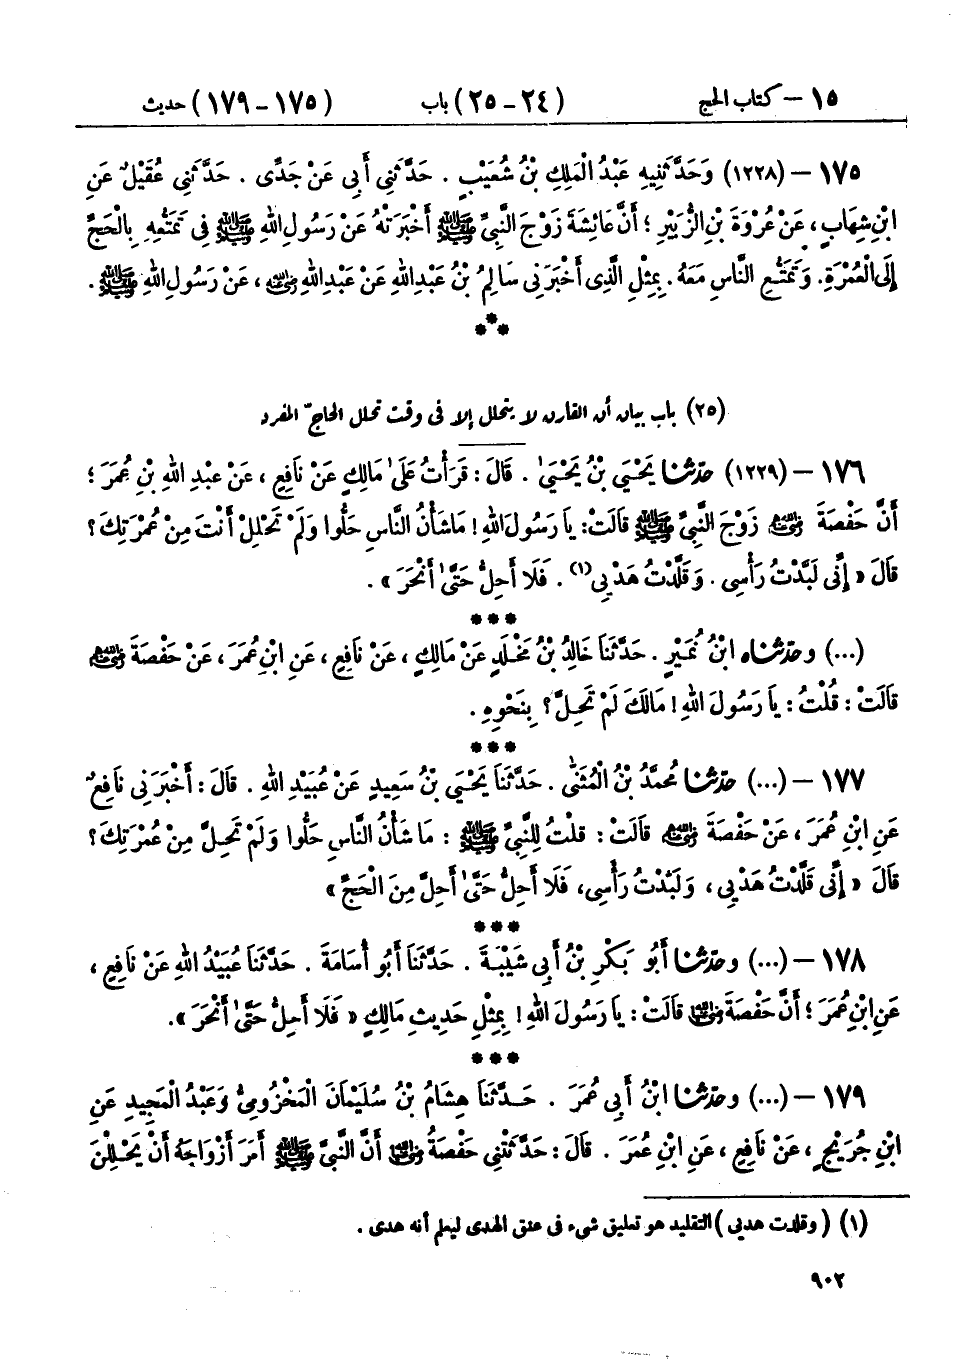 ١٥ – كتاب الحج (٢٤ – ٢٥) باب (١٧٥ – ١٧٩) حديث
١٧٥ – (١٢٢٨) وَحَدَّثَنِيهِ عَبْدُ الْمَلِكِ بْنُ شُعَيْبٍ . حَدَّثَنِي أَبِي عَنْ جَدِّى . حَدَّثَنِي عُقَيْلٌ عَنِ
ابْنِ شِهَابٍ ، عَنْ عُرْوَةَ بْنِ الزُّبَيْرِ ؛ أَنَّ عَائِشَةَ زَوْجَ النَّبِيِّ ﷺ أَخْبَرَتْهُ عَنْ رَسُولِ اللهِ ﷺ فِى تَمَتُّعِهِ بِالْحَجِّ
إِلَى الْعُمْرَةِ. وَتَمَتُّعِ النَّاسِ مَعَهُ . بِمِثْلِ الَّذِى أَخْبَرَنِي سَالِمُ بْنُ عَبْدِ اللهِ عَنْ عَبْدِ اللهِ رضي الله عنه ، عَنْ رَسُولِ اللهِ ﷺ .
***
(٢٥) باب بيان أن القارن لا يتحلل إلا فى وقت تحلل الحاجّ المفرد
١٧٦ – (١٢٢٩) حدّثنا يَحْيَىٰ بْنُ يَحْيَىٰ . قَالَ : قَرَأْتُ عَلَىٰ مَالِكٍ عَنْ نَافِعٍ ، عَنْ عَبْدِ اللهِ بْنِ عُمَرَ ؛
أَنَّ حَفْصَةَ رضي الله عنها زَوْجَ النَّبِيِّ ﷺ قَالَتْ: يَا رَسُولَ اللهِ ! مَا شَأْنُ النَّاسِ حَلُّوا وَلَمْ تَحْلِلْ أَنْتَ مِنْ عُمْرَتِكَ ؟
قَالَ « إِنِّى لَبَّدْتُ رَأْسِى . وَقَلَّدْتُ هَدْيِى(١) . فَلَا أَحِلُّ حَتَّىٰ أَنْحَرَ » .
***
(...) وحدّثناه ابْنُ نُمَيْرٍ . حَدَّثَنَا خَالِدُ بْنُ مَخْلَدٍ عَنْ مَالِكٍ ، عَنْ نَافِعٍ ، عَنِ ابْنِ عُمَرَ ، عَنْ حَفْصَةَ رضي الله عنها
قَالَتْ : قُلْتُ : يَا رَسُولَ اللهِ ! مَالَكَ لَمْ تَحِلَّ ؟ بِنَحْوِهِ .
***
١٧٧ – (...) حدّثنا مُحَمَّدُ بْنُ الْمُثَنَّى . حَدَّثَنَا يَحْيَىٰ بْنُ سَعِيدٍ عَنْ عُبَيْدِ اللهِ . قَالَ : أَخْبَرَنِي نَافِعٌ
عَنِ ابْنِ عُمَرَ ، عَنْ حَفْصَةَ رضي الله عنها قَالَتْ : قلْتُ لِلنَّبِيِّ ﷺ : مَا شَأْنُ النَّاسِ حَلُّوا وَلَمْ تَحِلَّ مِنْ عُمْرَتِكَ ؟
قَالَ « إِنِّى قَلَّدْتُ هَدْيِى ، وَلَبَّدْتُ رَأْسِى، فَلَا أَحِلُّ حَتَّىٰ أَحِلَّ مِنَ الْحَجِّ »
***
١٧٨ – (...) وحدّثنا أَبُو بَكْرِ بْنُ أَبِي شَيْبَةَ . حَدَّثَنَا أَبُو أُسَامَةَ . حَدَّثَنَا عُبَيْدُ اللهِ عَنْ نَافِعٍ ،
عَنِ ابْنِ عُمَرَ ؛ أَنَّ حَفْصَةَ رضي الله عنها قَالَتْ : يَا رَسُولَ اللهِ ! بِمِثْلِ حَدِيثِ مَالِكٍ « فَلَا أَحِلُّ حَتَّىٰ أَنْحَرَ ».
***
١٧٩ – (...) وحدّثنا ابْنُ أَبِي عُمَرَ . حَدَّثَنَا هِشَامُ بْنُ سُلَيْمَانَ الْمَخْزُومِيُّ وَعَبْدُ الْمَجِيدِ عَنِ
ابْنِ جُرَيْجٍ ، عَنْ نَافِعٍ ، عَنِ ابْنِ عُمَرَ . قَالَ : حَدَّثَتْنِي حَفْصَةُ رضي الله عنها أَنَّ النَّبِيَّ ﷺ أَمَرَ أَزْوَاجَهُ أَنْ يَحْلِلْنَ
(١) ( وقلدت هديى ) التقليد هو تعليق شىء فى عنق الهدى ليعلم أنه هدى .
٩٠٢